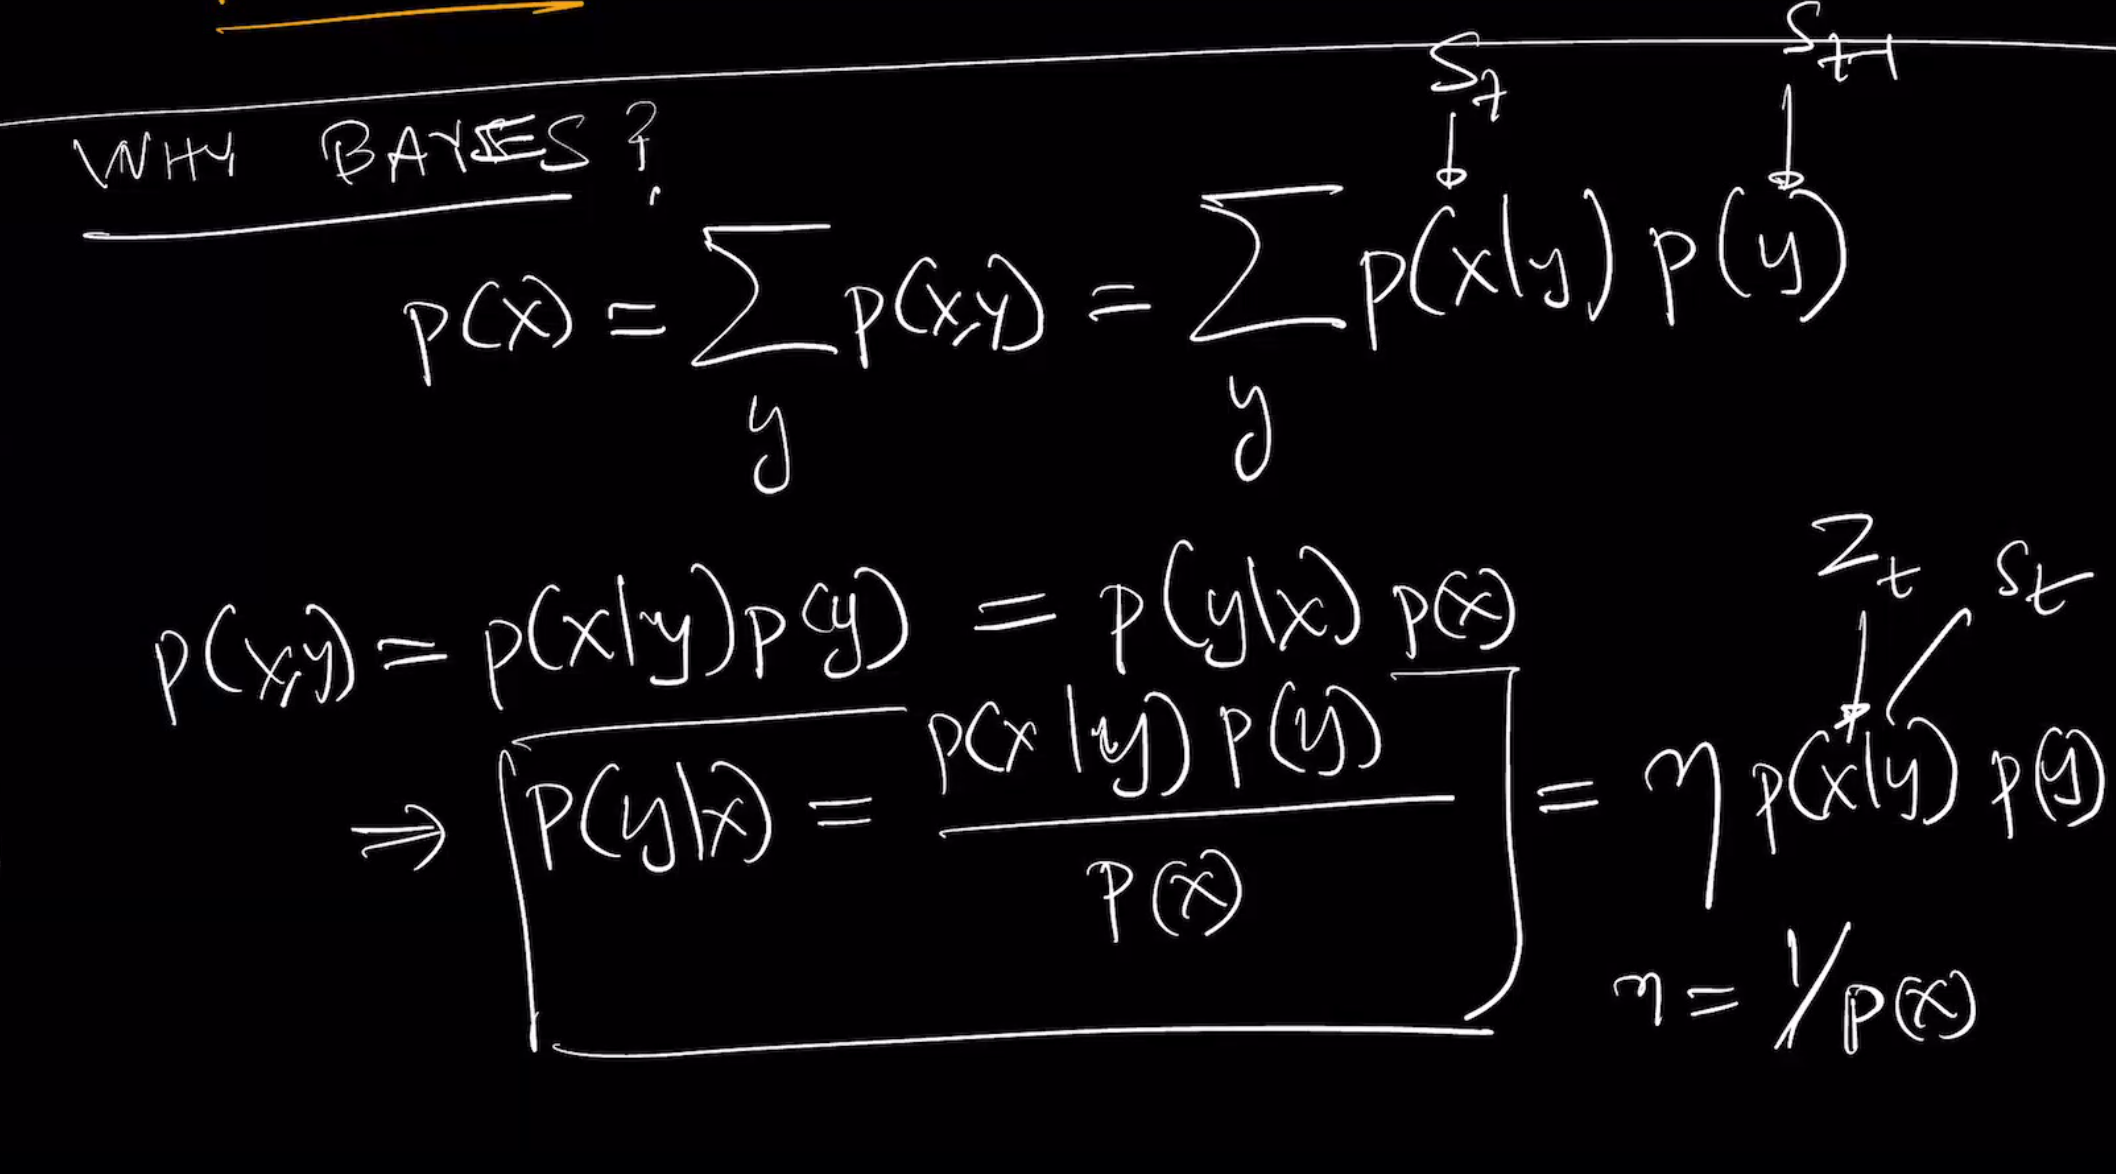 S_t S_{t-1}
WHY BAYES?
p(x) = ∑_y p(x,y) = ∑_y p(x|y) p(y)
z_t s_t
p(x,y) = p(x|y) p(y) = p(y|x) p(x)
⇒ p(y|x) = p(x|y) p(y) / p(x) = η p(x|y) p(y)
η = 1/p(x)